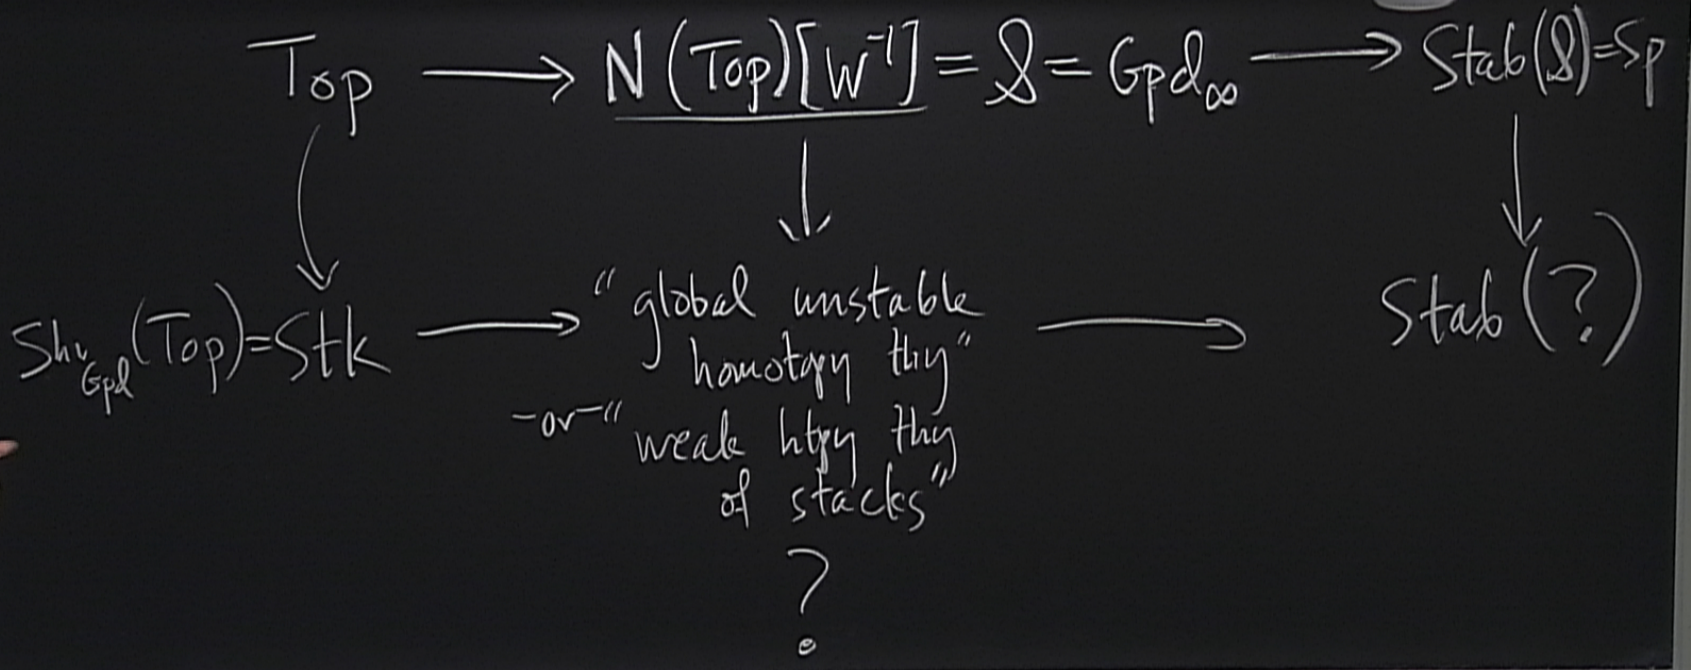 Top → N(Top)[W⁻¹] = 𝒮 = Gpd∞ → Stab(𝒮)=Sp
Shv_Gpd(Top)=Stk → "global unstable → Stab(?)
homotopy thy"
-or- "weak htpy thy
of stacks"
?